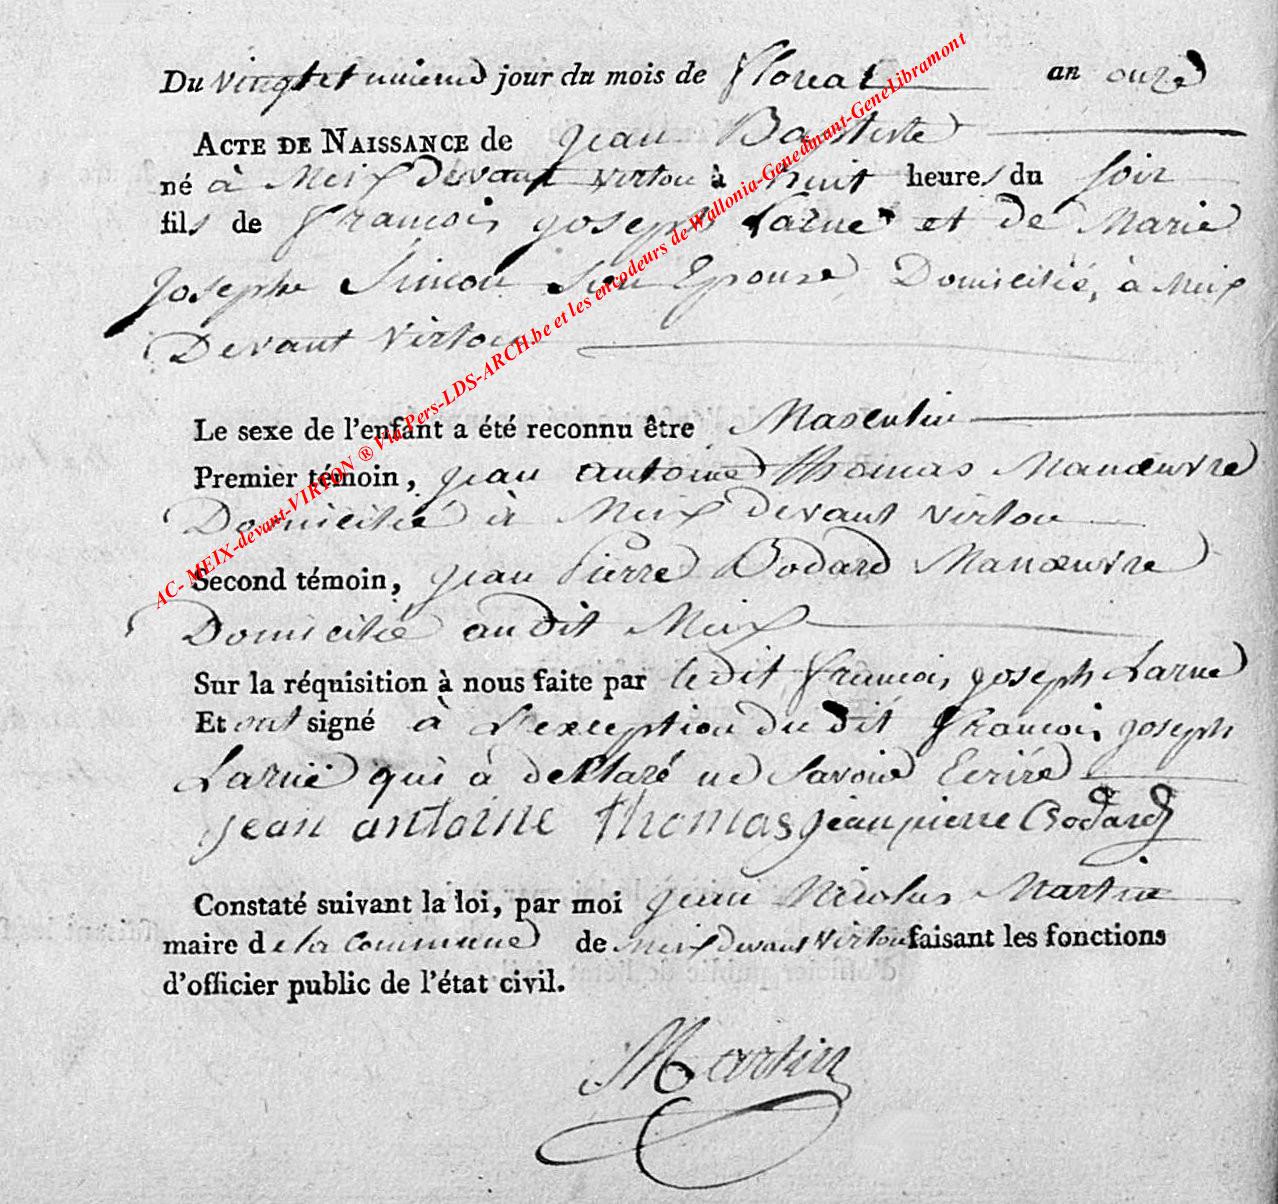 Du vingt et unieme jour du mois de floreal an onze
ACTE DE NAISSANCE de jean Baptiste
né à Meix devant virton à huit heures du soir
fils de francois joseph Larue et de Marie
josephe Simon son Epouse Domiciliés à Meix
Devant virton
Le sexe de l'enfant a été reconnu être Masculin
Premier témoin, jean antoine thomas Manœuvre
Domicilié à Meix devant virton
Second témoin, jean pierre Bodard Manœuvre
Domicilié au dit Meix
Sur la réquisition à nous faite par le dit francois joseph Larue
Et ont signé à L'exception du dit francois joseph
Larue qui à déklaré ne savoir Ecrire
jean antoine thomas jean pierre Bodard
Constaté suivant la loi, par moi jean Nicolas Martin
maire de la commune de Meix devant virton faisant les fonctions
d'officier public de l'état civil.
Martin
AC- MEIX-devant-VIRTON ® Via Pers-LDS-ARCH.be et les encodeurs de Wallonia-Genedinant-GeneLibramont